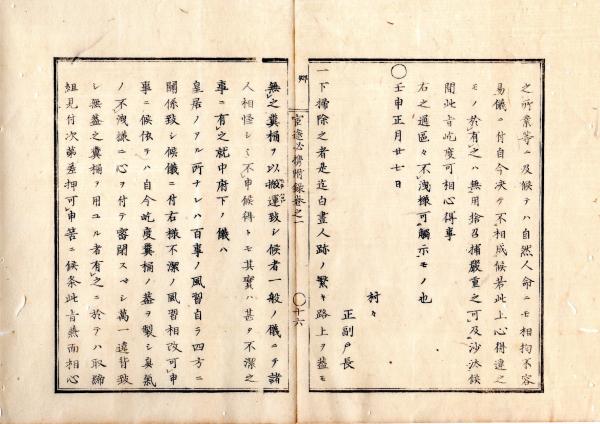 之所業等ニ及候テハ自然人命ニモ相拘不容
易儀ニ付自今决テ不相成候若此上心得違之
モノ於有之ハ無用捨召捕嚴重之可及沙汰候
間此旨屹度可相心得事
右之通區々不洩様可觸示モノ也
壬申正月廿七日
村々
正副戸長
一下掃除之者是迄白晝人跡ノ繁キ路上ヲ蓋モ
郷
官途必携附録巻之一
〇廿六
無之糞桶ヲ以搬運致シ候者一般ノ儀ニテ諸
人相怪シミ不申候得トモ其實ハ甚タ不潔之
事ニ有之就中府下ノ儀ハ
皇居ノアル所ナレハ百事ノ風習自ラ四方ニ
關係致シ候儀ニ付右様不潔ノ風習相改可申
事ニ候依テハ自今屹度糞桶ノ蓋ヲ製シ臭氣
ノ不洩様ニ心ヲ付テ密閉スヘシ萬一違背致
シ無蓋之糞桶ヲ用ユル者有之ニ於テハ取締
組見付次第差押可申筈ニ候条此旨兼而相心